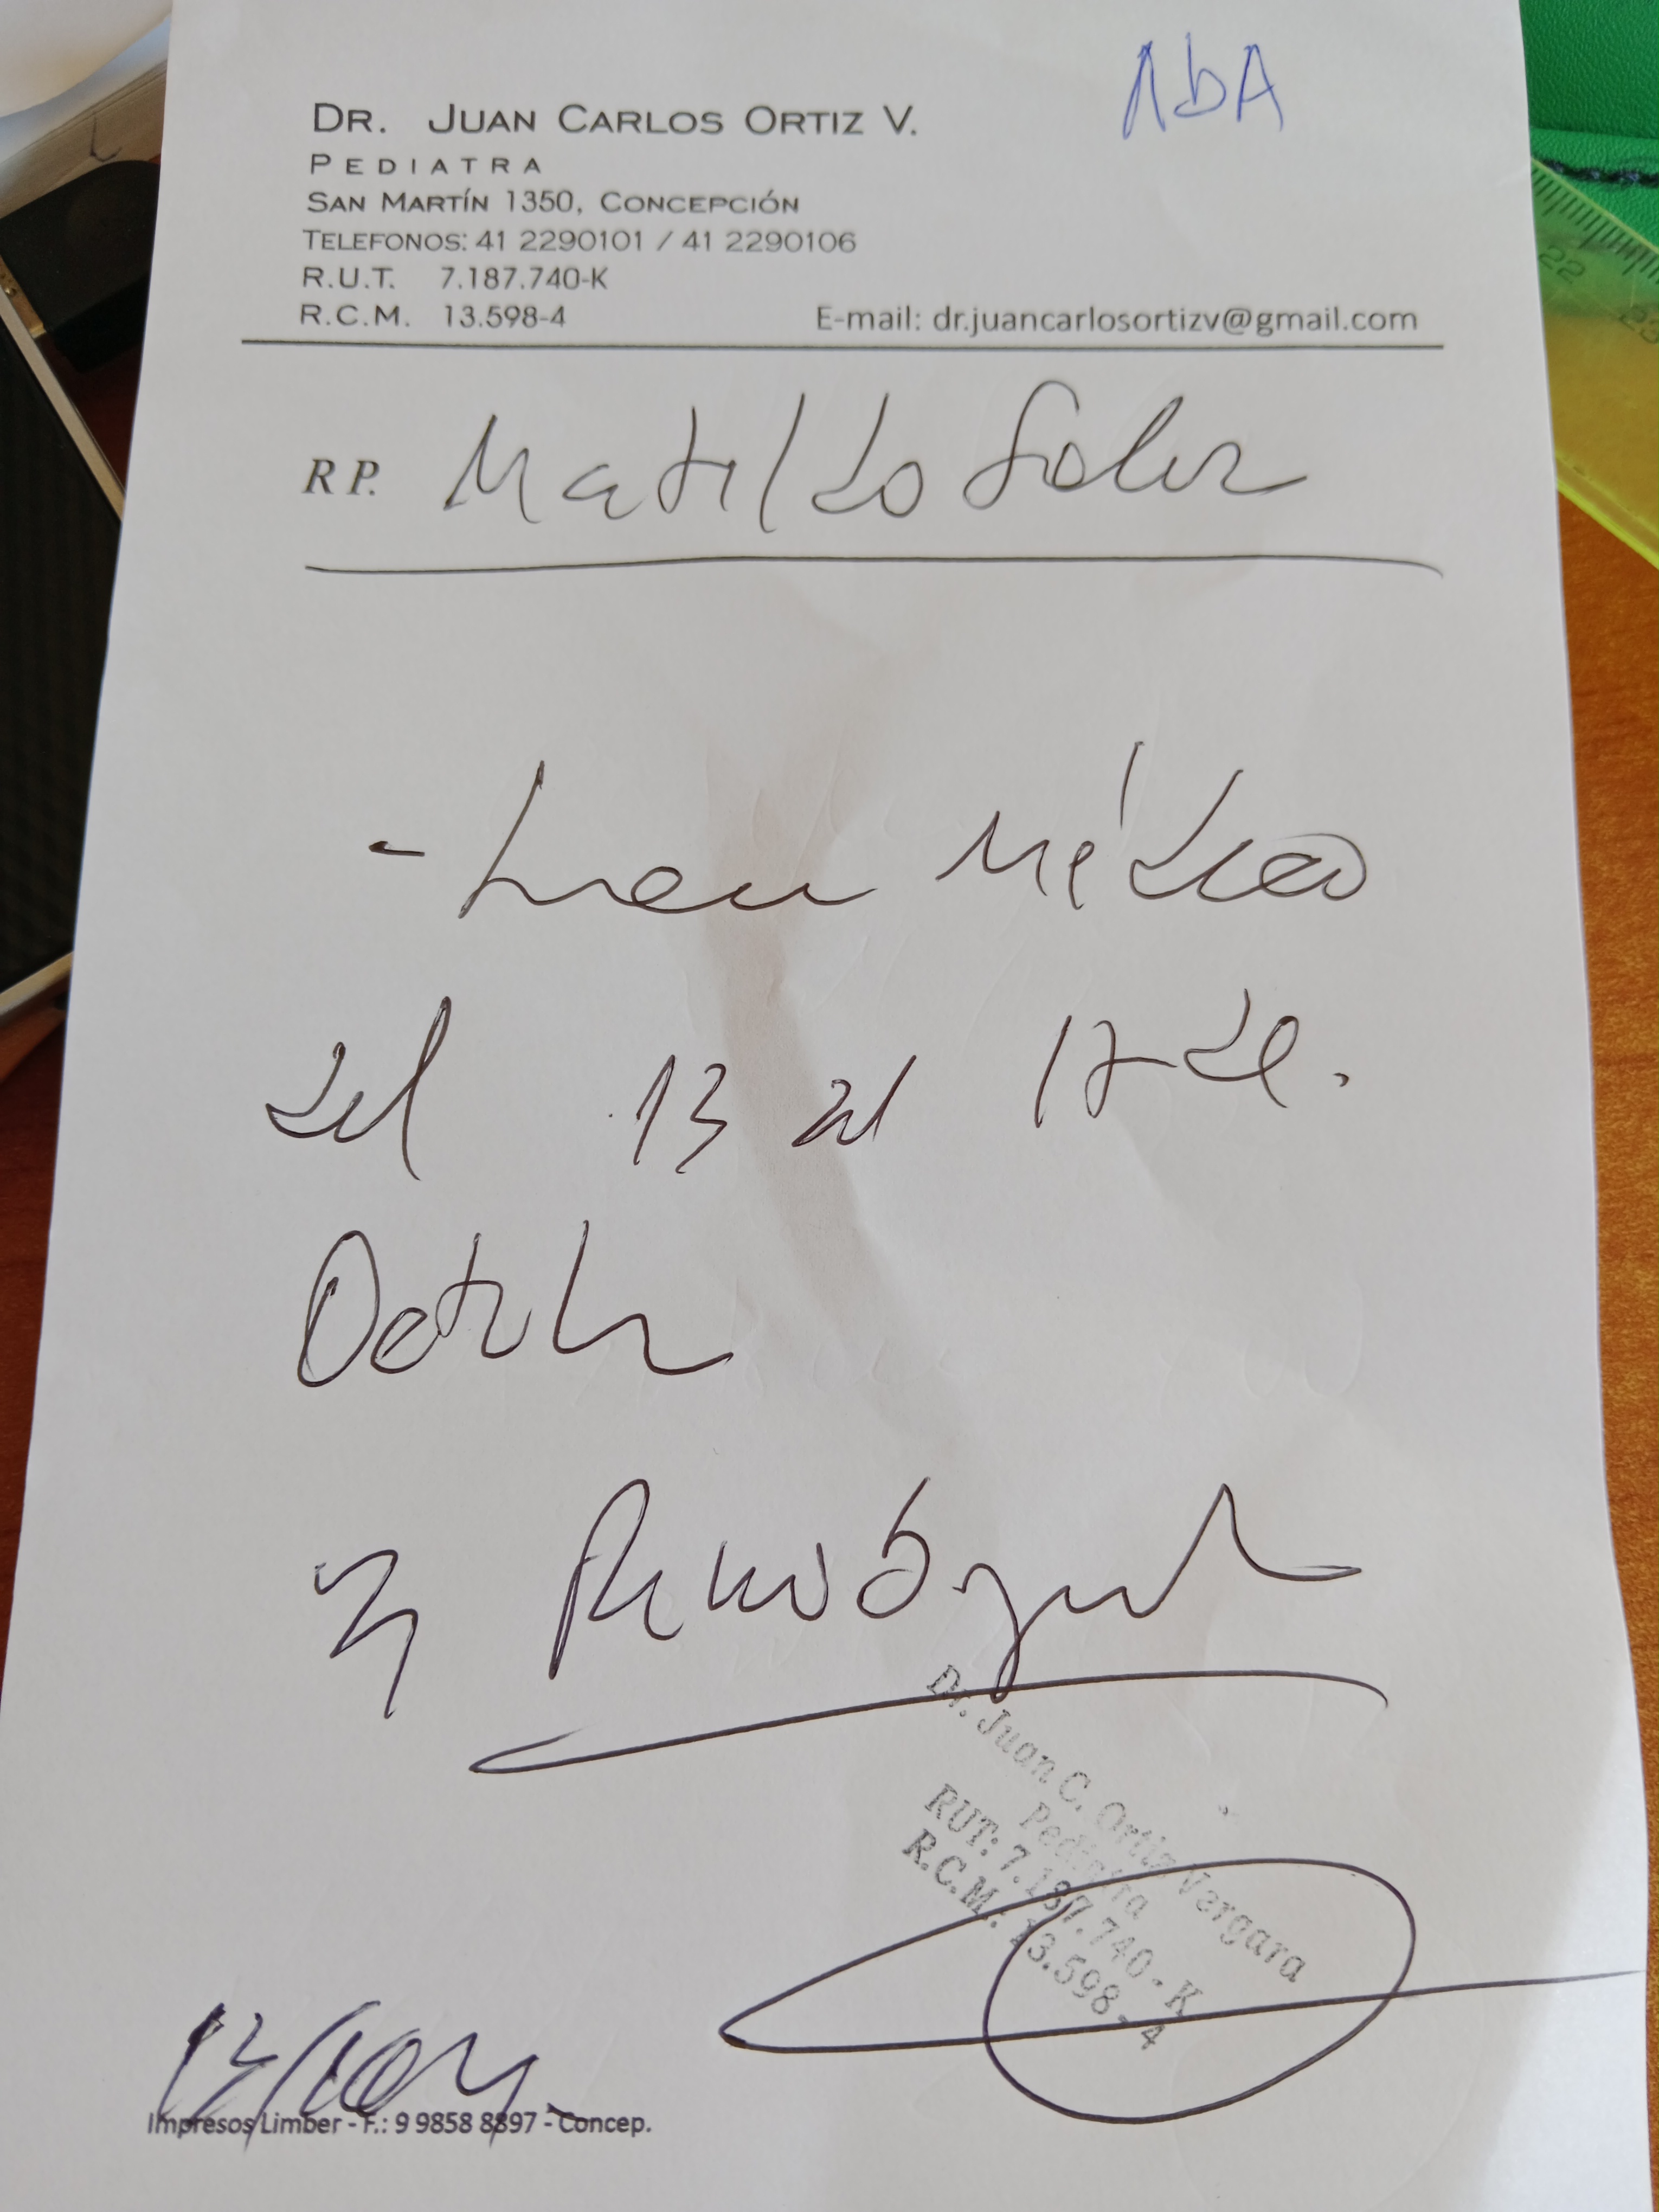 AbA
DR. JUAN CARLOS ORTIZ V.
PEDIATRA
SAN MARTÍN 1350, CONCEPCIÓN
TELEFONOS: 41 2290101 / 41 2290106
R.U.T. 7.187.740-K
R.C.M. 13.598-4 E-mail: dr.juancarlosortizv@gmail.com
RP. Matilde Soler
- Licencia Médica
del 13 al 17 de.
Octubre
Dr. Juan C. Ortiz Vergara
Pediatra
RUT: 7.187.740-K
R.C.M.: 13.598-4
Impresos Limber - F.: 9 9858 8897 - Concep.